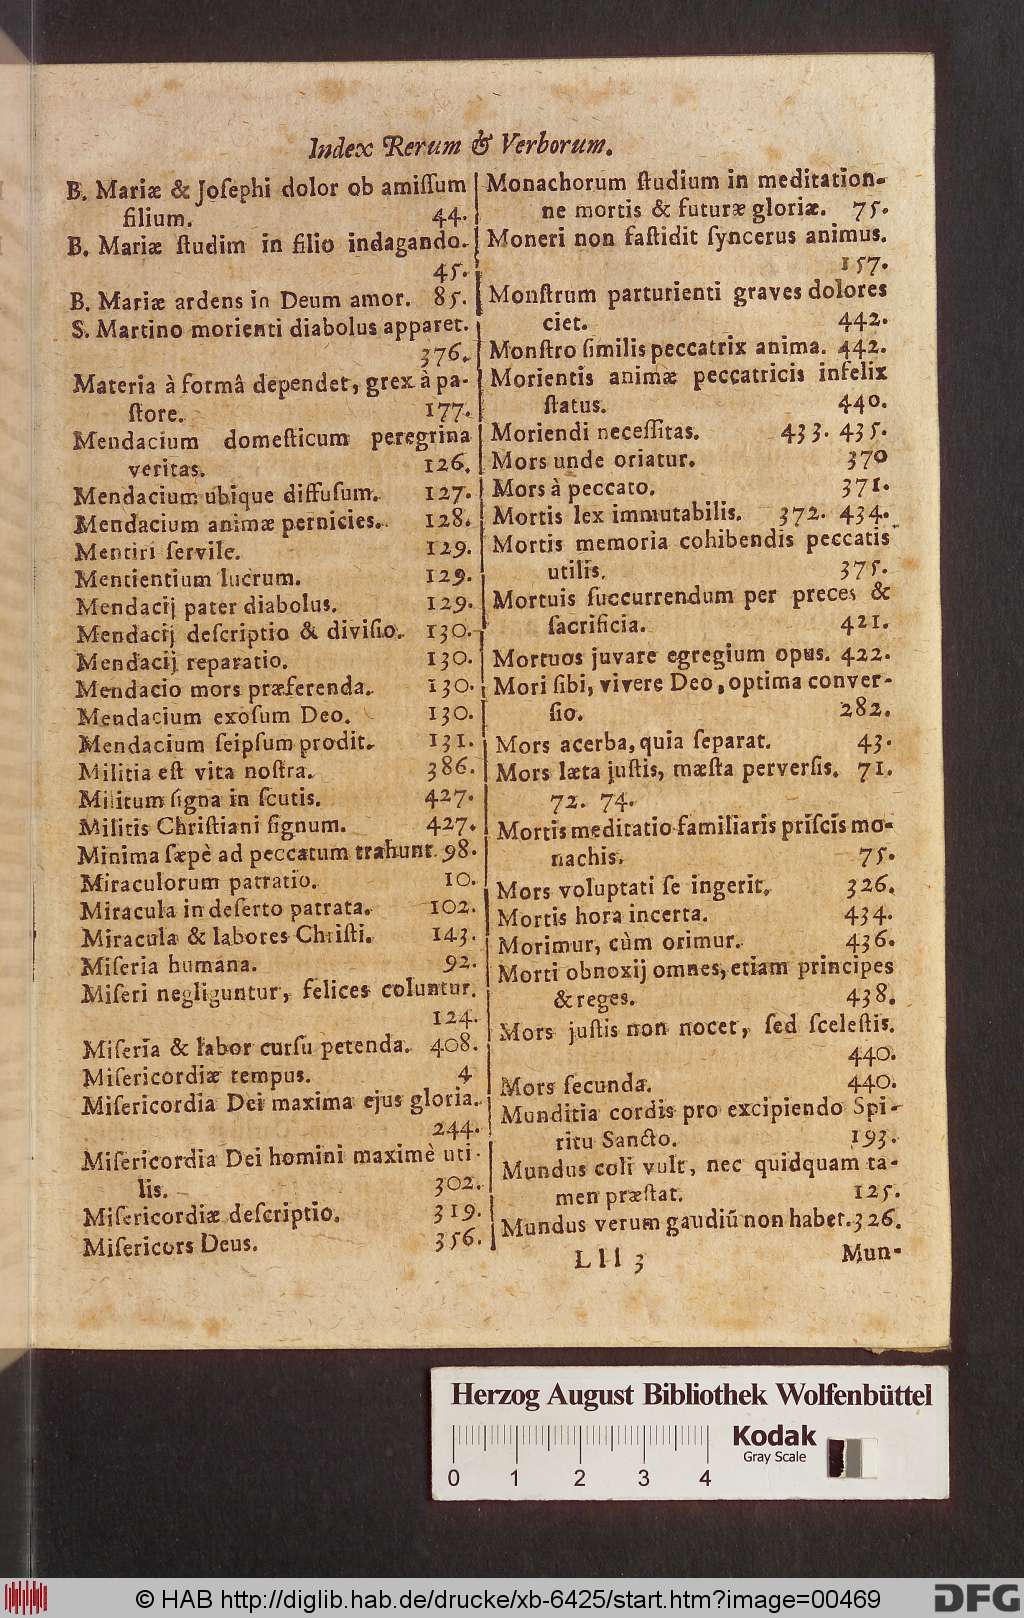 Index Rerum & Verborum.
B. Mariæ & Joſephi dolor ob amiſſum
filium. 44.
B. Mariæ ſtudim in filio indagando.
45.
B. Mariæ ardens in Deum amor. 85.
S. Martino morienti diabolus apparet.
376.
Materia à formâ dependet, grex à pa-
ſtore. 177.
Mendacium domeſticum peregrina
veritas. 126.
Mendacium ubique diffuſum. 127.
Mendacium animæ pernicies. 128.
Mentiri ſervile. 129.
Mentientium lucrum. 129.
Mendacij pater diabolus. 129.
Mendacij deſcriptio & diviſio. 130.
Mendacij reparatio. 130.
Mendacio mors præferenda. 130.
Mendacium exoſum Deo. 130.
Mendacium ſeipſum prodit. 131.
Militia eſt vita noſtra. 386.
Militum ſigna in ſcutis. 427.
Militis Chriſtiani ſignum. 427.
Minima ſæpè ad peccatum trahunt 98.
Miraculorum patratio. 10.
Miracula in deſerto patrata. 102.
Miracula & labores Chriſti. 143.
Miſeria humana. 92.
Miſeri negliguntur, felices coluntur.
124.
Miſeria & labor curſu petenda. 408.
Miſericordiæ tempus. 4
Miſericordia Dei maxima ejus gloria.
244.
Miſericordia Dei homini maximè uti-
lis. 302.
Miſericordiæ deſcriptio. 319.
Miſericors Deus. 356.
Monachorum ſtudium in meditation-
ne mortis & futuræ gloriæ. 75.
Moneri non faſtidit ſyncerus animus.
157.
Monſtrum parturienti graves dolores
ciet. 442.
Monſtro ſimilis peccatrix anima. 442.
Morientis animæ peccatricis infelix
ſtatus. 440.
Moriendi neceſſitas. 433. 435.
Mors unde oriatur. 370
Mors à peccato. 371.
Mortis lex immutabilis. 372. 434.
Mortis memoria cohibendis peccatis
utilis. 375.
Mortuis ſuccurrendum per preces &
ſacrificia. 421.
Mortuos juvare egregium opus. 422.
Mori ſibi, vivere Deo, optima conver-
ſio. 282.
Mors acerba, quia ſeparat. 43.
Mors læta juſtis, mæſta perverſis. 71.
72. 74.
Mortis meditatio familiaris priſcis mo-
nachis. 75.
Mors voluptati ſe ingerit. 326.
Mortis hora incerta. 434.
Morimur, cùm orimur. 436.
Morti obnoxij omnes, etiam principes
& reges. 438.
Mors juſtis non nocet, ſed ſceleſtis.
440.
Mors ſecunda. 440.
Munditia cordis pro excipiendo Spi-
ritu Sancto. 193.
Mundus coli vult, nec quidquam ta-
men præſtat. 125.
Mundus verum gaudiũ non habet. 326.
Lll 3 Mun-
Herzog August Bibliothek Wolfenbüttel
Kodak
Gray Scale
0 1 2 3 4
© HAB http://diglib.hab.de/drucke/xb-6425/start.htm?image=00469
DFG